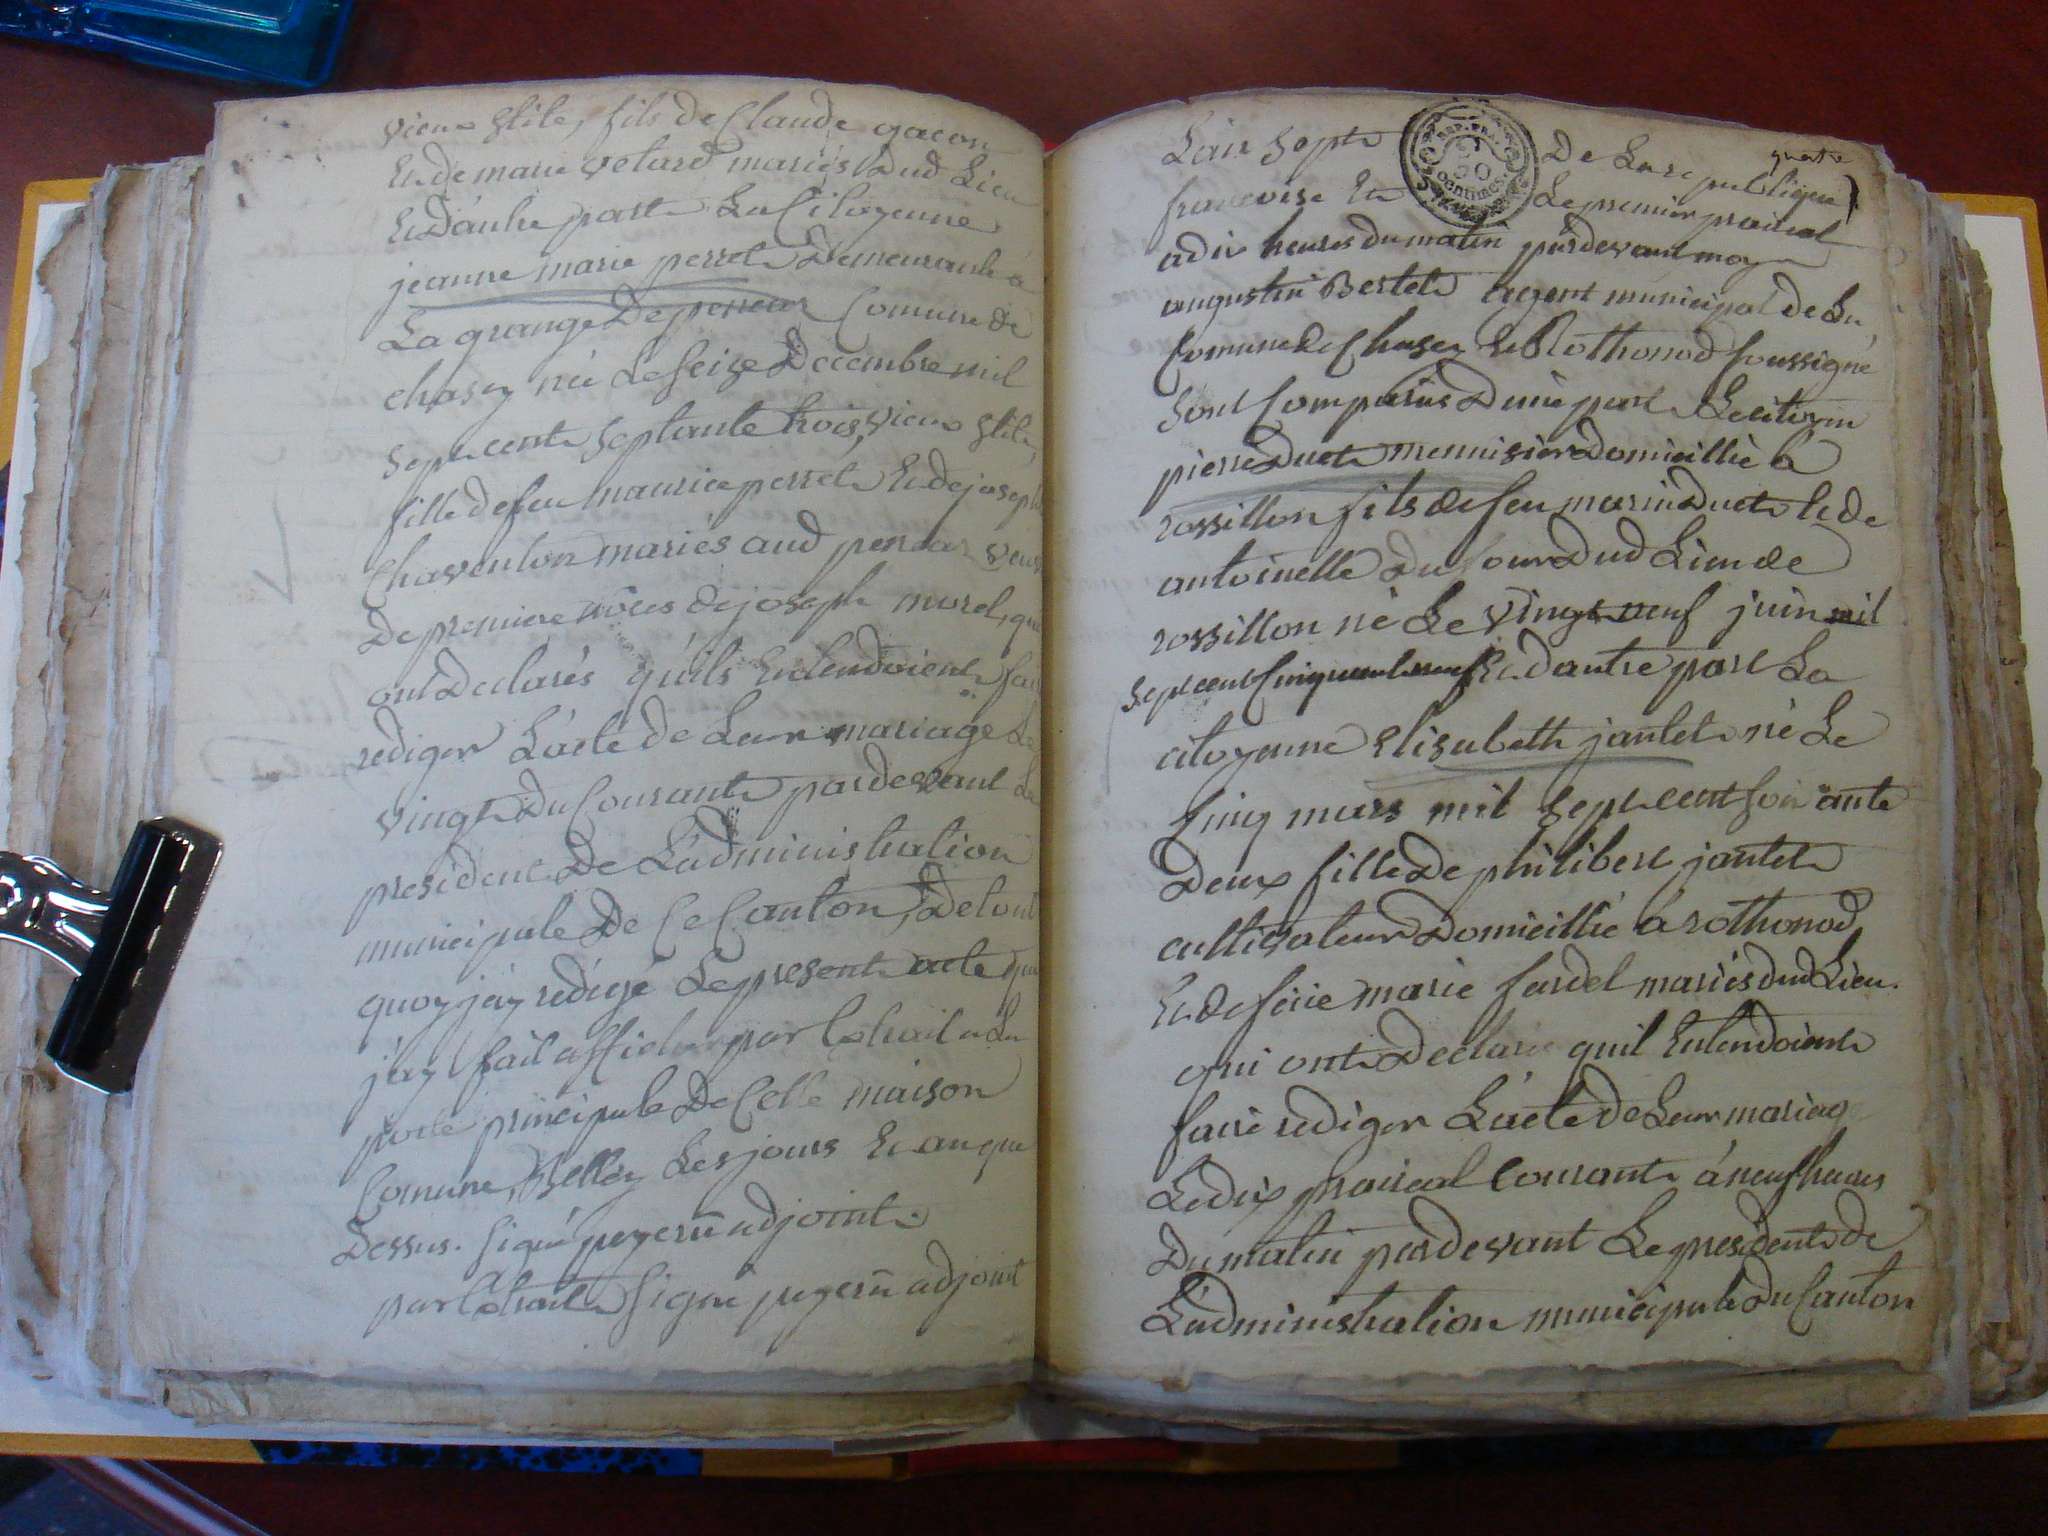 vieux stile, fils de Claude gacon
Et de marie velard mariés dud Lieu
Et D'autre part La Citoyenne
jeanne marie perret Demeurante a
La grange De perrear Comune de
chasey née Le seize Decembre mil
Sept cent Septante trois, vieux stile,
fille de feu maurice perret Et de joseph
Chaventon mariés aud perrear veuve
De premiere nôces de joseph morel, qui
ont Declarés qu'ils Entendoient fair
rediger L'acte de Leur mariage Le
vingt Du Courant pardevant Le
president De L'administration
municipale De Ce Canton, De tout
quoy j'ay rédigé Le present acte que
j'ay fait afficher par Extrait a La
porte principale De Cette maison
Comune, Belley Les jours Et an que
Dessus. Signé peyern adjoint.
par Extrait Signé peyern adjoint
L'an Sept De La republique quatre
francoise Et Le premier prairial
a dix heures du matin pardevant moy
augustin Bertet Agent municipal de La
Comune de Chasey Et Rothonod soussigné
Sont Comparus D'une part Le citoyen
pierre Duet mennisier Domicillié à
rossillon fils de feu marin Duet Et de
antoinette Dufour Dud Lieu de
rossillon né Le vingt neuf juin mil
Sept cent Cinquante neuf Et d'autre part La
citoyenne Elisabeth jantet né Le
Cinq mars mil Sept cent Soixante
Deux fille De philibert jantet
cultivateur Domicillié à rothonod
Et de marie fardel mariés dud Lieu.
qui ont Declaré quil Entendoient
faire rediger L'acte de Leur mariag
Le dix prairial Courant à neuf heures
Du matin pardevant Le president de
L'administration municipale Du Canton
REP. FRA.
50
centimes.